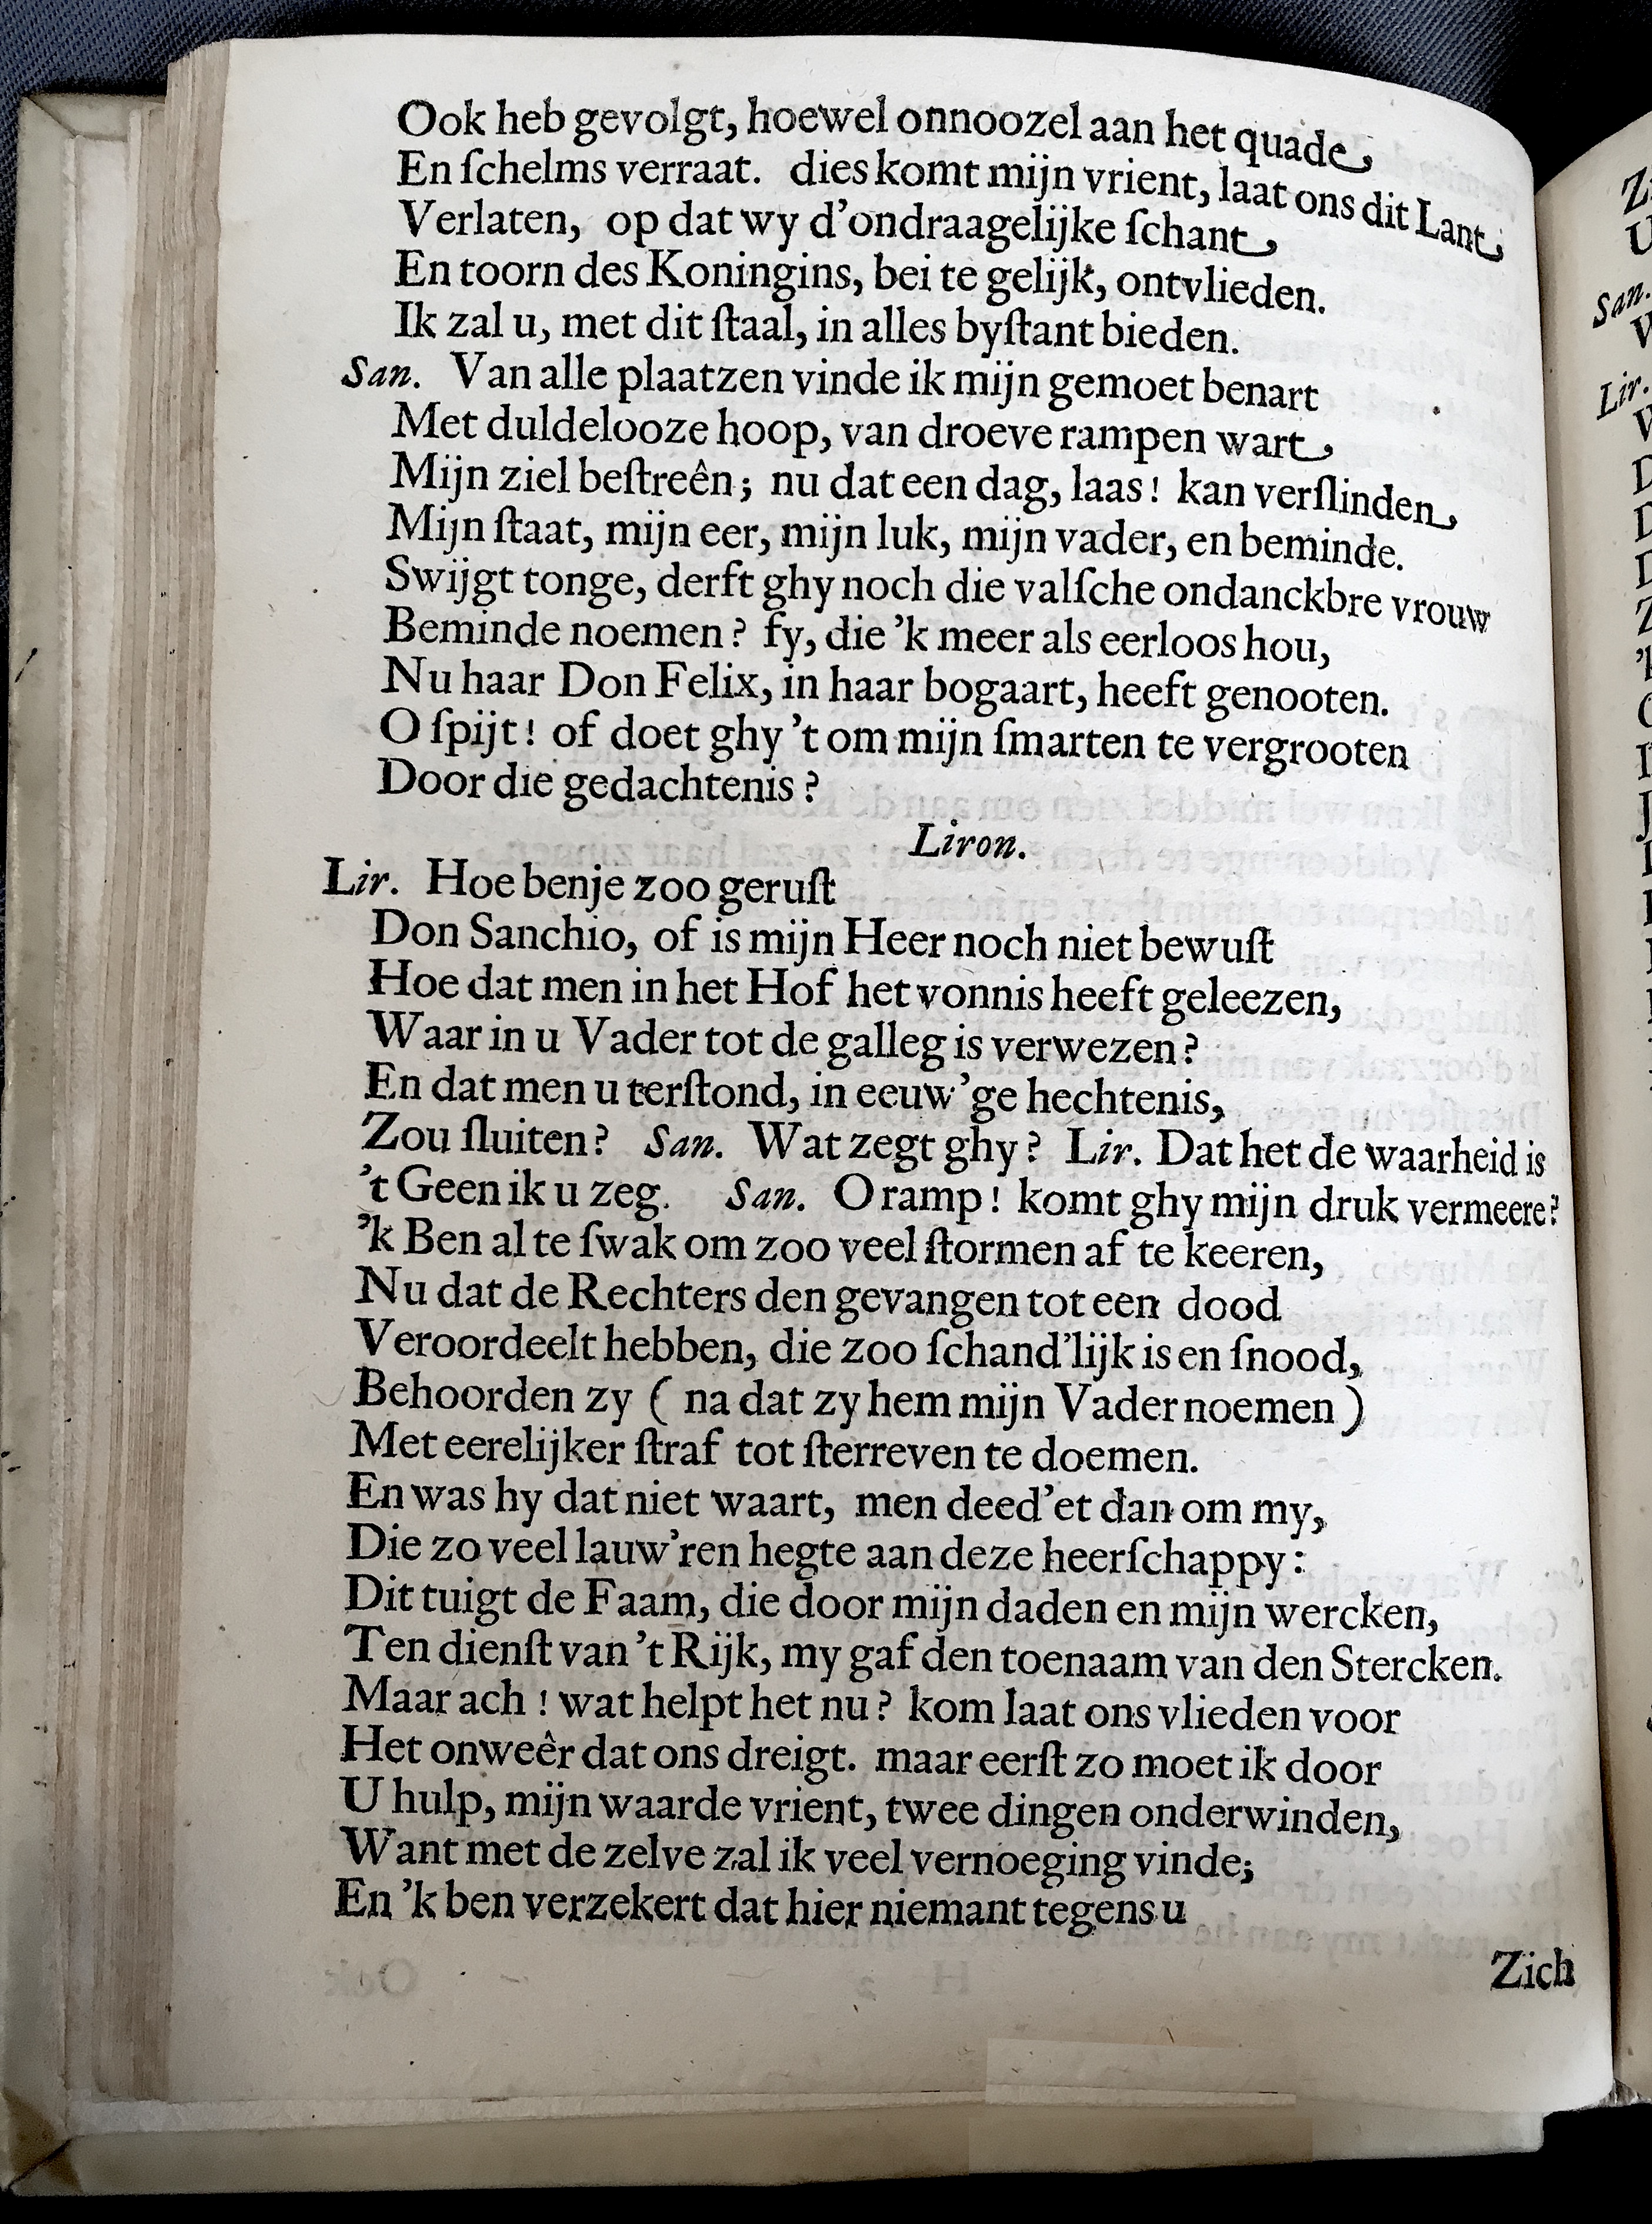 Ook heb gevolgt, hoewel onnoozel aan het quade
En ſchelms verraat. dies komt mijn vrient, laat ons dit Lant
Verlaten, op dat wy d'ondraagelijke ſchant
En toorn des Koningins, bei te gelijk, ontvlieden.
Ik zal u, met dit ſtaal, in alles byſtant bieden.
San. Van alle plaatzen vinde ik mijn gemoet benart
Met duldelooze hoop, van droeve rampen wart
Mijn ziel beſtreên; nu dat een dag, laas! kan verſlinden
Mijn ſtaat, mijn eer, mijn luk, mijn vader, en beminde.
Swijgt tonge, derft ghy noch die valſche ondanckbre vrouw
Beminde noemen? fy, die 'k meer als eerloos hou,
Nu haar Don Felix, in haar bogaart, heeft genooten.
O ſpijt! of doet ghy 't om mijn ſmarten te vergrooten
Door die gedachtenis?
Liron.
Lir. Hoe benje zoo geruſt
Don Sanchio, of is mijn Heer noch niet bewuſt
Hoe dat men in het Hof het vonnis heeft geleezen,
Waar in u Vader tot de galleg is verwezen?
En dat men u terſtond, in eeuw'ge hechtenis,
Zou ſluiten? San. Wat zegt ghy? Lir. Dat het de waarheid is
't Geen ik u zeg. San. O ramp! komt ghy mijn druk vermeere?
'k Ben al te ſwak om zoo veel ſtormen af te keeren,
Nu dat de Rechters den gevangen tot een dood
Veroordeelt hebben, die zoo ſchand'lijk is en ſnood,
Behoorden zy ( na dat zy hem mijn Vader noemen )
Met eerelijker ſtraf tot ſterreven te doemen.
En was hy dat niet waart, men deed'et dan om my,
Die zo veel lauw'ren hegte aan deze heerſchappy:
Dit tuigt de Faam, die door mijn daden en mijn wercken,
Ten dienſt van 't Rijk, my gaf den toenaam van den Stercken.
Maar ach! wat helpt het nu? kom laat ons vlieden voor
Het onweêr dat ons dreigt. maar eerſt zo moet ik door
U hulp, mijn waarde vrient, twee dingen onderwinden,
Want met de zelve zal ik veel vernoeging vinde;
En 'k ben verzekert dat hier niemant tegens u
Zich
San.
Lir.